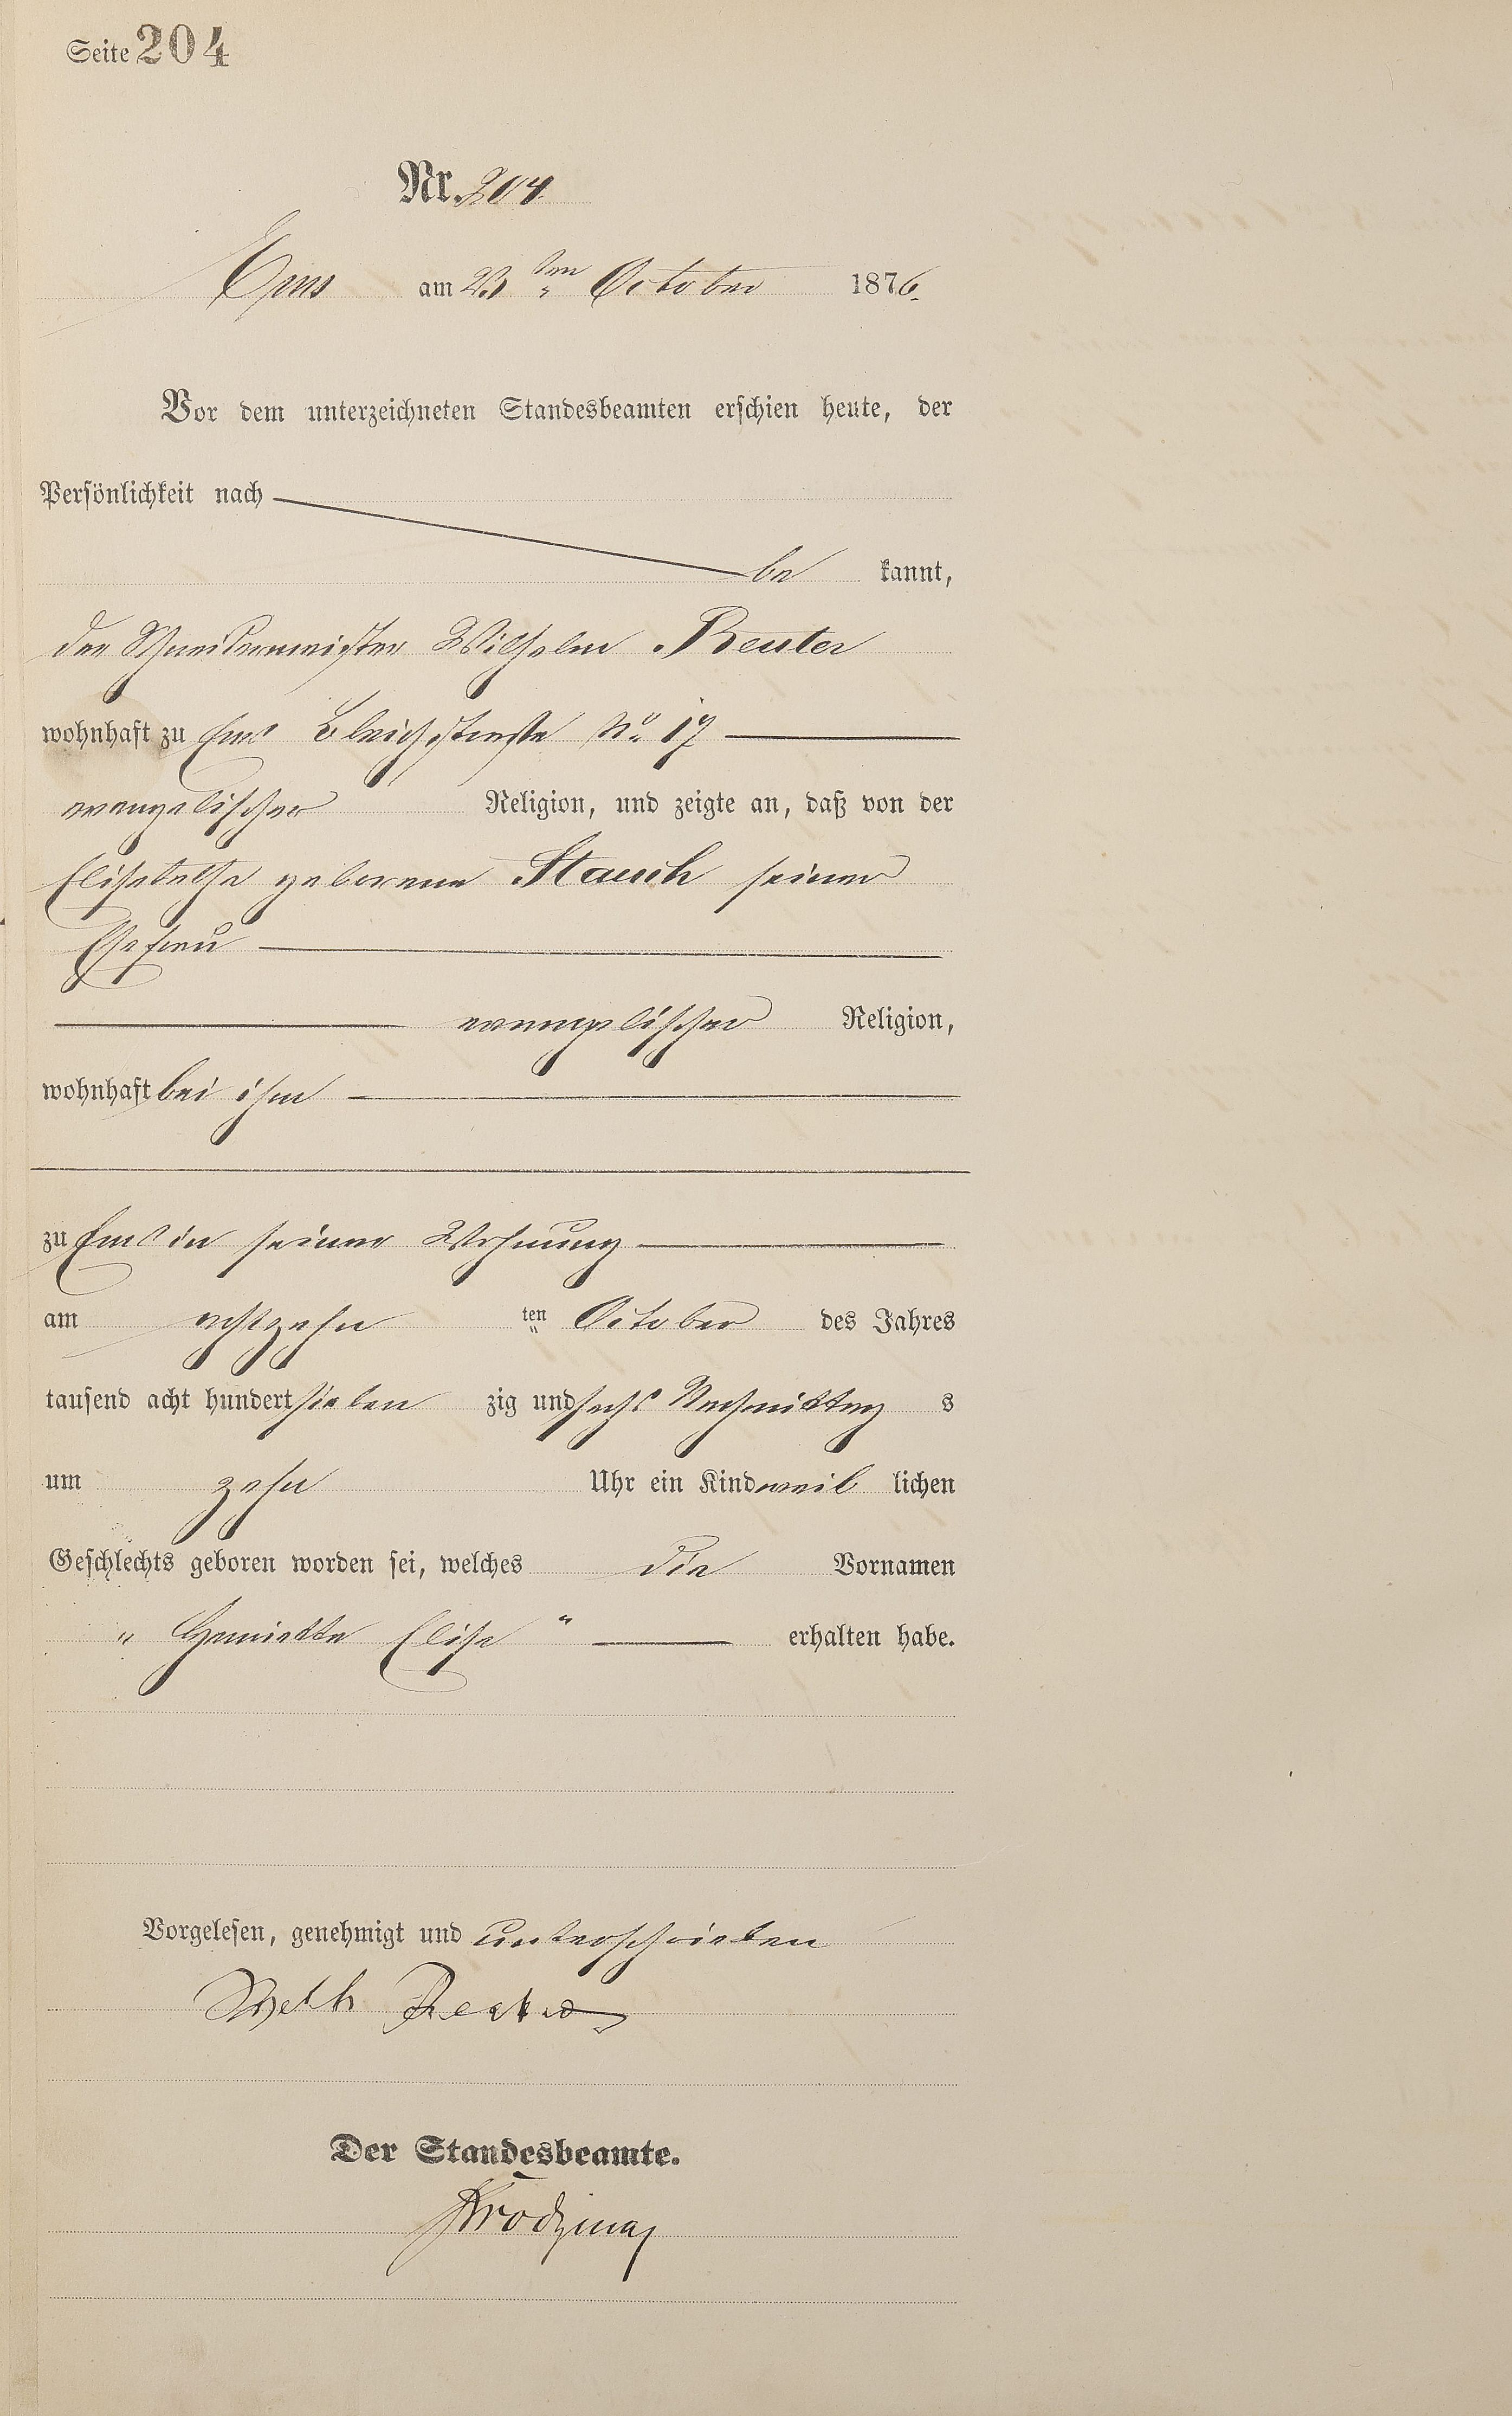 Seite 204
Nr. 204.
Ems am 23ten October 1876.
Vor dem unterzeichneten Standesbeamten erschien heute, der
Persönlichkeit nach
be kannt,
der Schneidermeister Wilhelm Reuter
wohnhaft zu Ems Bleichstraße No 17
evangelischer Religion, und zeigte an, daß von der
Elisabetha geborene Stauch seiner
Ehefrau
evangelischer Religion,
wohnhaft bei ihm
zu Ems in seiner Wohnung
am achtzehn ten October des Jahres
tausend acht hundert sieben zig und sechs Nachmittag s
um zehn Uhr ein Kind weib lichen
Geschlechts geboren worden sei, welches die Vornamen
" Henriette Elise " erhalten habe.
Vorgelesen, genehmigt und unterschrieben
Reuter
Der Standesbeamte.